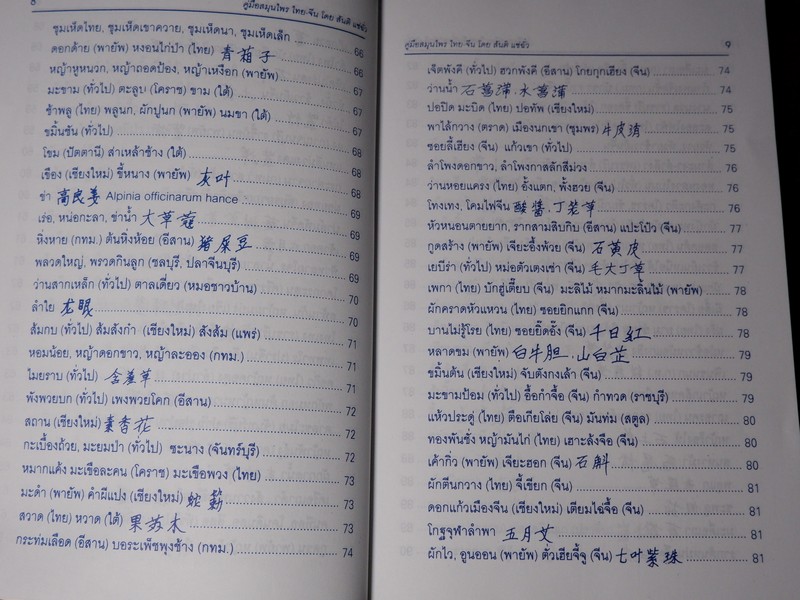 8 คู่มือสมุนไพร ไทย-จีน โดย สันติ แซ่ฉั่ว
ชุมเห็ดไทย, ชุมเห็ดเขาควาย, ชุมเห็ดนา, ชุมเห็ดเล็ก 66
ดอกด้าย (พายัพ) หงอนไก่ป่า (ไทย) 青葙子 66
หญ้าหูหนวก, หญ้าถอดบ้อง, หญ้าเหงือก (พายัพ) 67
มะขาม (ทั่วไป) ตะลูบ (โคราช) ขาม (ใต้) 67
ช้าพลู (ไทย) พลูนก, ผักปูนก (พายัพ) นมขา (ใต้) 67
ขมิ้นชัน (ทั่วไป) 68
โขม (ปัตตานี) ส่าเหล้าช้าง (ใต้) 68
เชือง (เชียงใหม่) ขี้หนาง (พายัพ) 灰叶 68
ข่า 高良姜 Alpinia officinarum hance 69
เร่อ, หน่อกะลา, ข่าน้ำ 大草蔻 69
หิ่งหาย (กทม.) ต้นหิ่งห้อย (อีสาน) 猪屎豆 69
พลวดใหญ่, พรวดกินลูก (ชลบุรี, ปลาจีนบุรี) 69
ว่านสากเหล็ก (ทั่วไป) ตาลเดี่ยว (หมอชาวบ้าน) 70
ลำไย 龙眼 70
ส้มกบ (ทั่วไป) ส้มสังกำ (เชียงใหม่) สังส้ม (แพร่) 71
หอมน้อย, หญ้าดอกขาว, หญ้าละออง (กทม.) 71
ไมยราบ (ทั่วไป) 含羞草 71
พังพวยบก (ทั่วไป) เพงพวยโคก (อีสาน) 72
สถาน (เชียงใหม่) 素香花 72
กะเบื้องถ้วย, มะยมป่า (ทั่วไป) ชะนาง (จันทร์บุรี) 72
หมากแค้ง มะเขือละคน (โคราช) มะเขือพวง (ไทย) 73
มะดำ (พายัพ) คำผีแปง (เชียงใหม่) 蛇簕 73
สวาด (ไทย) หวาด (ใต้) 果苏木 73
กระท่มเลือด (อีสาน) บอระเพ็ชพุงช้าง (กทม.) 74
คู่มือสมุนไพร ไทย-จีน โดย สันติ แซ่ฉั่ว 9
เจ็ตพังคี (ทั่วไป) ฮวกพังคี (อีสาน) โกยกุกเฮียง (จีน) 74
ว่านน้ำ 石菖蒲, 水菖蒲 74
ปอปิด มะบิด (ไทย) ปอทัพ (เชียงใหม่) 75
พาไล้กวาง (ตราด) เมืองนกเขา (ชุมพร) 牛皮消 75
ซอยลี้เฮียง (จีน) แก้วเขา (ทั่วไป) 75
ลำโพงดอกขาว, ลำโพงกาสลักสีม่วง 76
ว่านหอยแครง (ไทย) อั้งแตก, พั้งฮวย (จีน) 76
โทงเทง, โคมไฟจีน 酸醬, 丁笼草 76
หัวหนอนตายยาก, รากสามสิบกิบ (อีสาน) แปะโป้ว (จีน) 77
กูดสร้าง (พายัพ) เจียะอึ้งพ้วย (จีน) 石黄皮 77
เยบีร่า (ทั่วไป) หม่อตัวเตงเช่า (จีน) 毛大丁草 77
เพกา (ไทย) บักฮู่เตี๊ยบ (จีน) มะลิไม้ หมากมะลิ้นไม้ (พายัพ) 78
ผักคราดหัวแหวน (ไทย) ซอยยิกแกก (จีน) 78
บานไม่รู้โรย (ไทย) ซอยยิ๊ดอั๊ง (จีน) 千日红 78
หลาดขม (พายัพ) 白牛胆, 山白芷 79
ขมิ้นต้น (เชียงใหม่) จับตังกงเล้า (จีน) 79
มะขามป้อม (ทั่วไป) อื้อกำจื้อ (จีน) กำทวด (ราชบุรี) 79
แห้วประดู่ (ไทย) ตือเกียโล่ย (จีน) มันท่ม (สตูล) 80
ทองพันชั่ง หญ้ามันไก่ (ไทย) เฮาะลังจือ (จีน) 80
เค้ากิ่ว (พายัพ) เจียะฮอก (จีน) 石斛 80
ผักตีนกวาง (ไทย) จี้เชียก (จีน) 81
ดอกแก้วเมืองจีน (เชียงใหม่) เตียมไฉ่จื้อ (จีน) 81
โกฐจุฬาลำพา 五月艾 81
ผักไว, อูนออน (พายัพ) ตั่วเฮียจี้จู (จีน) 七叶紫珠 81